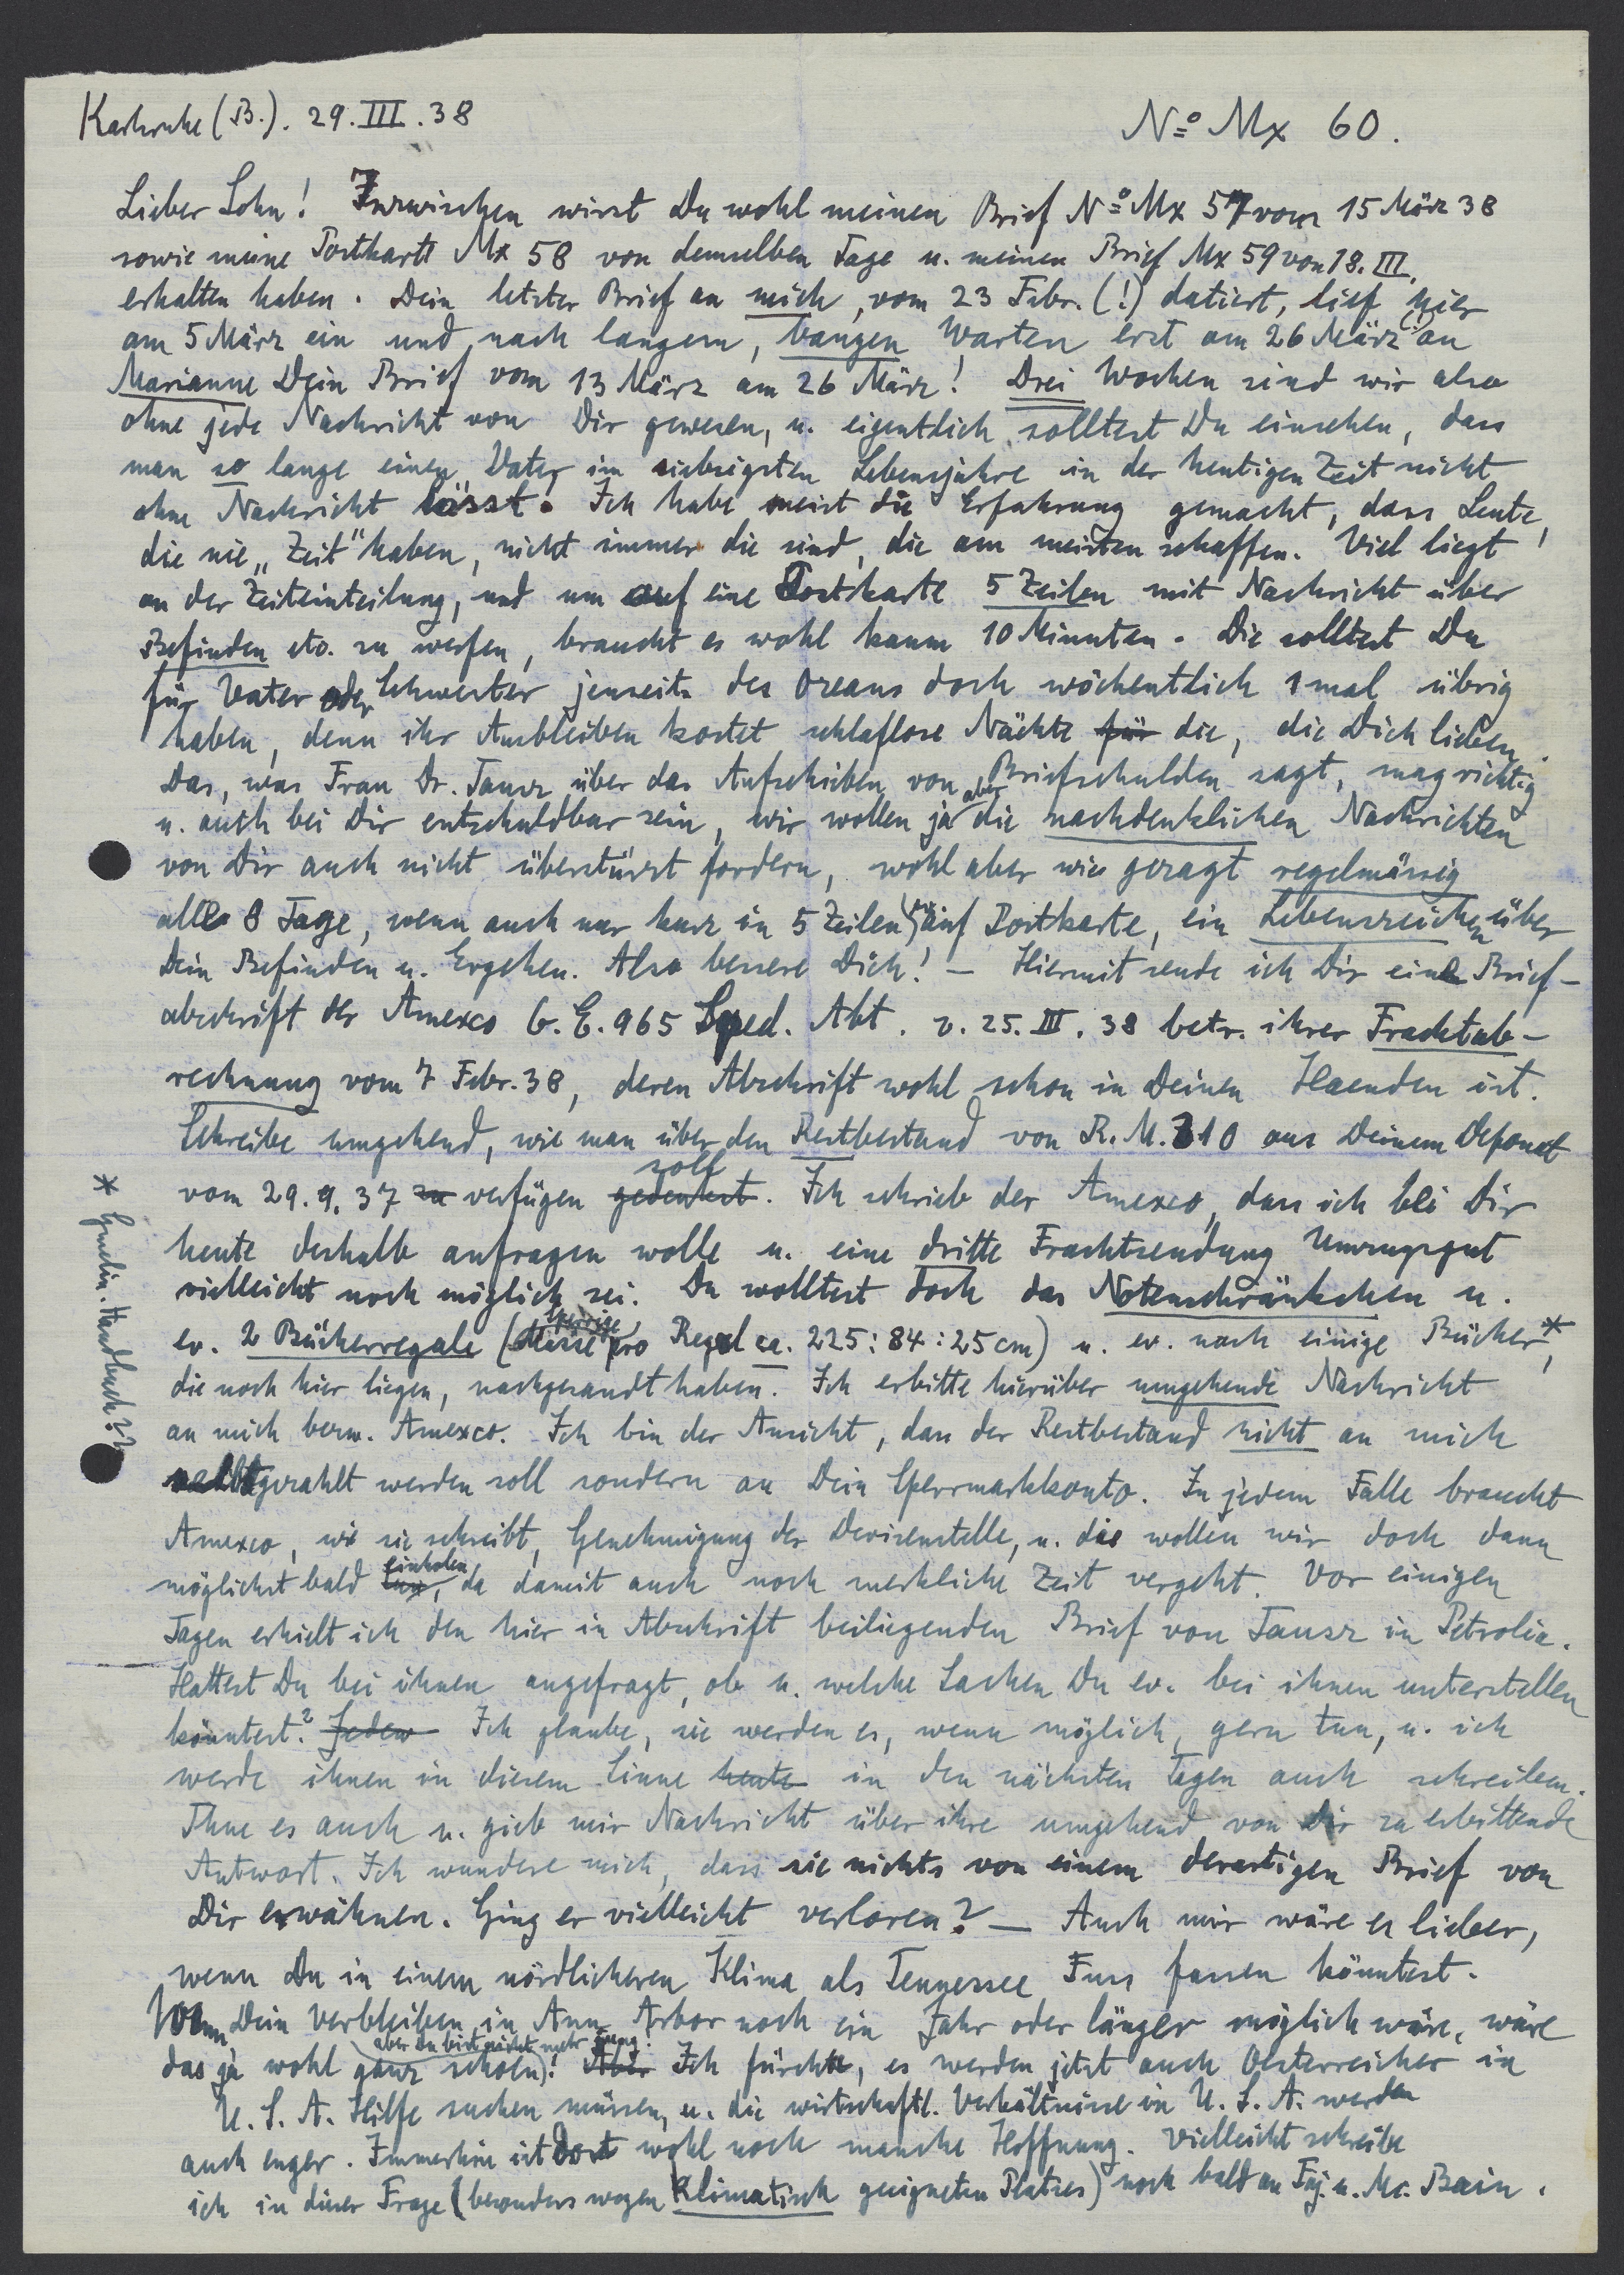 Karlsruhe (B.). 29. III. 38
No Mx 60.
Lieber Sohn! Inzwischen wirst Du wohl meinen Brief No Mx 57 vom 15 März 38
sowie meine Postkarte Mx 58 von demselben Tage u. meinen Brief Mx 59 von 18. III.
erhalten haben. Dein letzter Brief an mich, vom 23 Febr. (!) datiert, lief hier
am 5 März ein und nach langem, bangen Warten erst am 26 März (!) an
Marianne Dein Brief vom 13 März am 26 März! Drei Wochen sind wir also
ohne jede Nachricht von Dir gewesen, u. eigentlich solltest Du einsehen, dass
man so lange einen Vater im siebzigsten Lebensjahre in der heutigen Zeit nicht
ohne Nachricht lässt. Ich habe meist die Erfahrung gemacht, dass Leute,
die nie „Zeit" haben, nicht immer die sind, die am meisten schaffen. Viel liegt
an der Zeiteinteilung, und um auf eine Postkarte 5 Zeilen mit Nachricht über
Befinden etc. zu werfen, braucht es wohl kaum 10 Minuten. Die solltest Du
für Vater oder Schwester jenseits des Ozeans doch wöchentlich 1 mal übrig
haben, denn ihr Ausbleiben kostet schlaflose Nächte für die, die Dich lieben.
Das, was Frau Dr. Tausz über das Aufschieben von Briefschulden sagt, mag richtig
u. auch bei Dir entschuldbar sein, wir wollen ja aber die nachdenklichen Nachrichten
von Dir auch nicht überstürzt fordern, wohl aber wie gesagt regelmässig
alle 8 Tage, wenn auch nur kurz in 5 Zeilen auf Postkarte, ein Lebenszeichen über
Dein Befinden u. Ergehen. Also bessere Dich! – Hiermit sende ich Dir eine Brief-
abschrift der Amexco G. E. 965 Sped. Abt. v. 25. III. 38 betr. ihrer Frachtab-
rechnung vom 7 Febr. 38, deren Abschrift wohl schon in Deinen Haenden ist.
Schreibe umgehend, wie man über den Restbestand von R. M. 310 aus Deinem Deponat
vom 29. 9. 37 zu verfügen gedenkest soll. Ich schrieb der Amexco, dass ich bei Dir
heute deshalb anfragen wolle u. eine dritte Frachtsendung Umzugsgut
vielleicht noch möglich sei. Du wolltest doch das Notenschränkchen u.
ev. 2 Bücherregale (Masse pro Regal ca. 225 : 84 : 25 cm) u. ev. noch einige Bücher*,
die noch hier liegen, nachgesandt haben. Ich erbitte hierüber umgehende Nachricht
an mich bezw. Amexco. Ich bin der Ansicht, dass der Restbestand nicht an mich
gezahlt werden soll sondern an Dein Sperrmarkkonto. In jedem Falle braucht
Amexco, wie sie schreibt, Genehmigung der Devisenstelle, u. die wollen wir doch dann
möglichst bald tun einholen, da damit auch noch merkliche Zeit vergeht. Vor einigen
Tagen erhielt ich den hier in Abschrift beiliegenden Brief von Tausz in Petrolia.
Hattest Du bei ihnen angefragt, ob u. welche Sachen Du ev. bei ihnen unterstellen
könntest? Jeden Ich glaube, sie werden es, wenn möglich, gern tun, u. ich
werde ihnen in diesem Sinne heute in den nächsten Tagen auch schreiben.
Thue es auch u. gieb mir Nachricht über ihre umgehend von Dir zu erbittende
Antwort. Ich wundere mich, dass sie nichts von einem derartigen Brief von
Dir erwähnen. Ging er vielleicht verloren? – Auch mir wäre es lieber,
wenn Du in einem nördlicheren Klima als Tennessee Fuss fassen könntest.
Wenn Dein Verbleiben in Ann Arbor noch ein Jahr oder länger möglich wäre, wäre
das ja wohl ganz schoen (aber Du bist nicht mehr jung)! Aber Ich fürchte, es werden jetzt auch Oesterreicher in
U. S. A. Hilfe suchen müssen, u. die wirtschaftl. Verhältnisse in U. S. A. werden
auch enger. Immerhin ist dort wohl noch manche Hoffnung. Vielleicht schreibe
ich in dieser Frage (besonders wegen klimatisch geeigneten Platzes) noch bald an Faj. u. Mc. Bain.
* Gmelin. Handbuch??